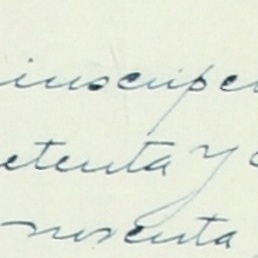 inscripci
etenta y c
noventa